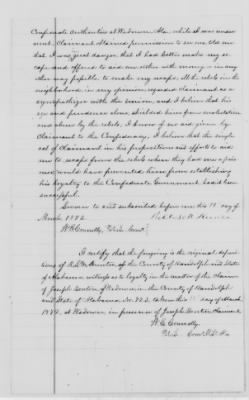 Confederate Authorities at Wedowee Ala. while I was under
arrest. Claimant
that I was in great danger, that I had better make my es-
cape and offered to aid me either with money or in any
other way possible to make my escape. All the rebels in the
neighborhood in my opinion regarded claimant as a
sympathizer with the Union, and I believe that his
age and prudence alone shielded him from molestation
and abuse by the rebels. I know of no aid given by
Claimant to the Confederacy, I believe that the single
act of Claimant in his proposition and efforts to aid
me to escape from the rebels when they had me a pris-
oner would have prevented him from establishing
his loyalty to the Confederate Government had it been
successful.
Sworn to and subscribed before me this 19 day of
March 1872.
W. G. Connelly, Special Comr
I certify that the foregoing is the original deposi-
tion of of the County of Randolph and
State of Alabama witness as to loyalty in the matter of the claim
of Joseph Benton of Wedowee in the County of Randolph
and State of Alabama, No. taken this day of March
1872, at Wedowee in presence of Joseph Benton Claimant
W. G. Connelly
Special Comr